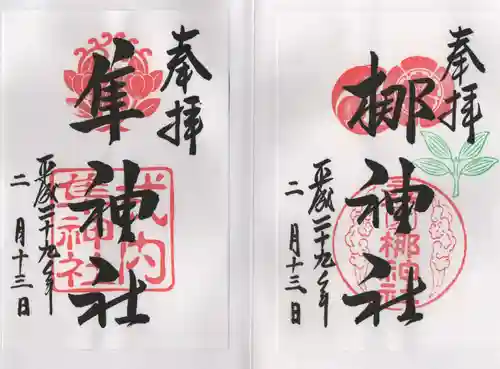 奉拝
梛神社
平成二十九年
二月十三日
梛神社
奉拝
隼神社
平成二十九年
二月十三日
式内
隼神社